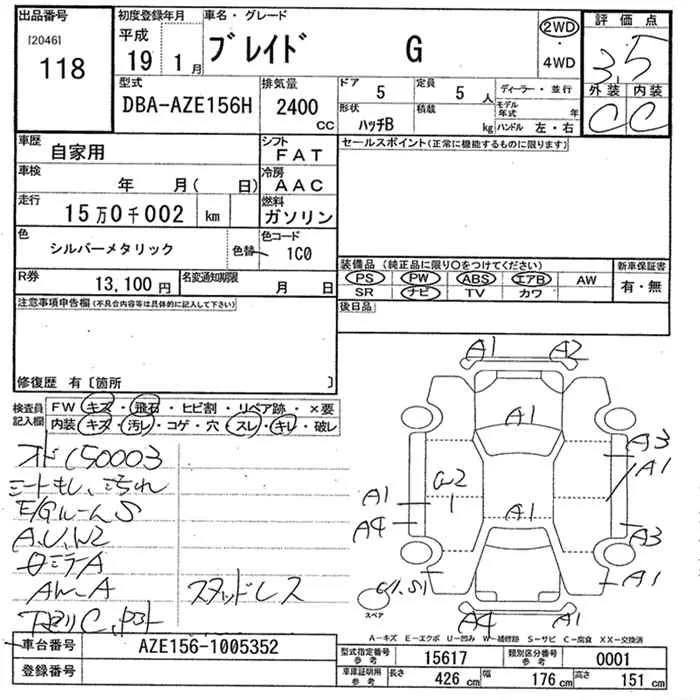 出品番号
[2046]
118
初度登録年月
平成
19 1月
車名・グレード
ブレイド G
2WD
・
4WD
評価点
3.5
外装 内装
C C
型式
DBA-AZE156H
排気量
2400
cc
ドア
5
定員
5 人
形状
ハッチB
積載
kg
ディーラー・並行
モデル年式 年
ハンドル 左・右
車歴
自家用
シフト
FAT
車検
年 月( 日)
冷房
AAC
走行
15万0千002 km
燃料
ガソリン
色
シルバーメタリック
色替
色コード
1C0
R券
13,100円
名変通知期限
月 日
セールスポイント(正常に機能するものに限ります)
装備品 (純正品に限り○をつけてください)
PS PW ABS エアB AW
SR ナビ TV カワ
新車保証書
有・無
後日品
注意事項申告欄(不具合内容等は具体的に記入して下さい)
修復歴 有〔箇所 〕
検査員記入欄
FW キズ・飛石・ヒビ割・リペア跡・×要
内装 キズ・汚レ・コゲ・穴・スレ・キレ・破レ
シートもし、汚れ
E/Gルーム S
A.U.W2
スタッドレス
A1 A2
A1
A3
A1
A1
A4
A1
A3
A1
A4 A1
スペア
A-キズ E-エクボ U-凹み W-補修跡 S-サビ C-腐食 XX-交換済
車台番号
AZE156-1005352
登録番号
型式指定番号
参考
15617
類別区分番号
参考
0001
車庫証明用
参考
長さ 426cm
幅 176cm
高さ 151cm